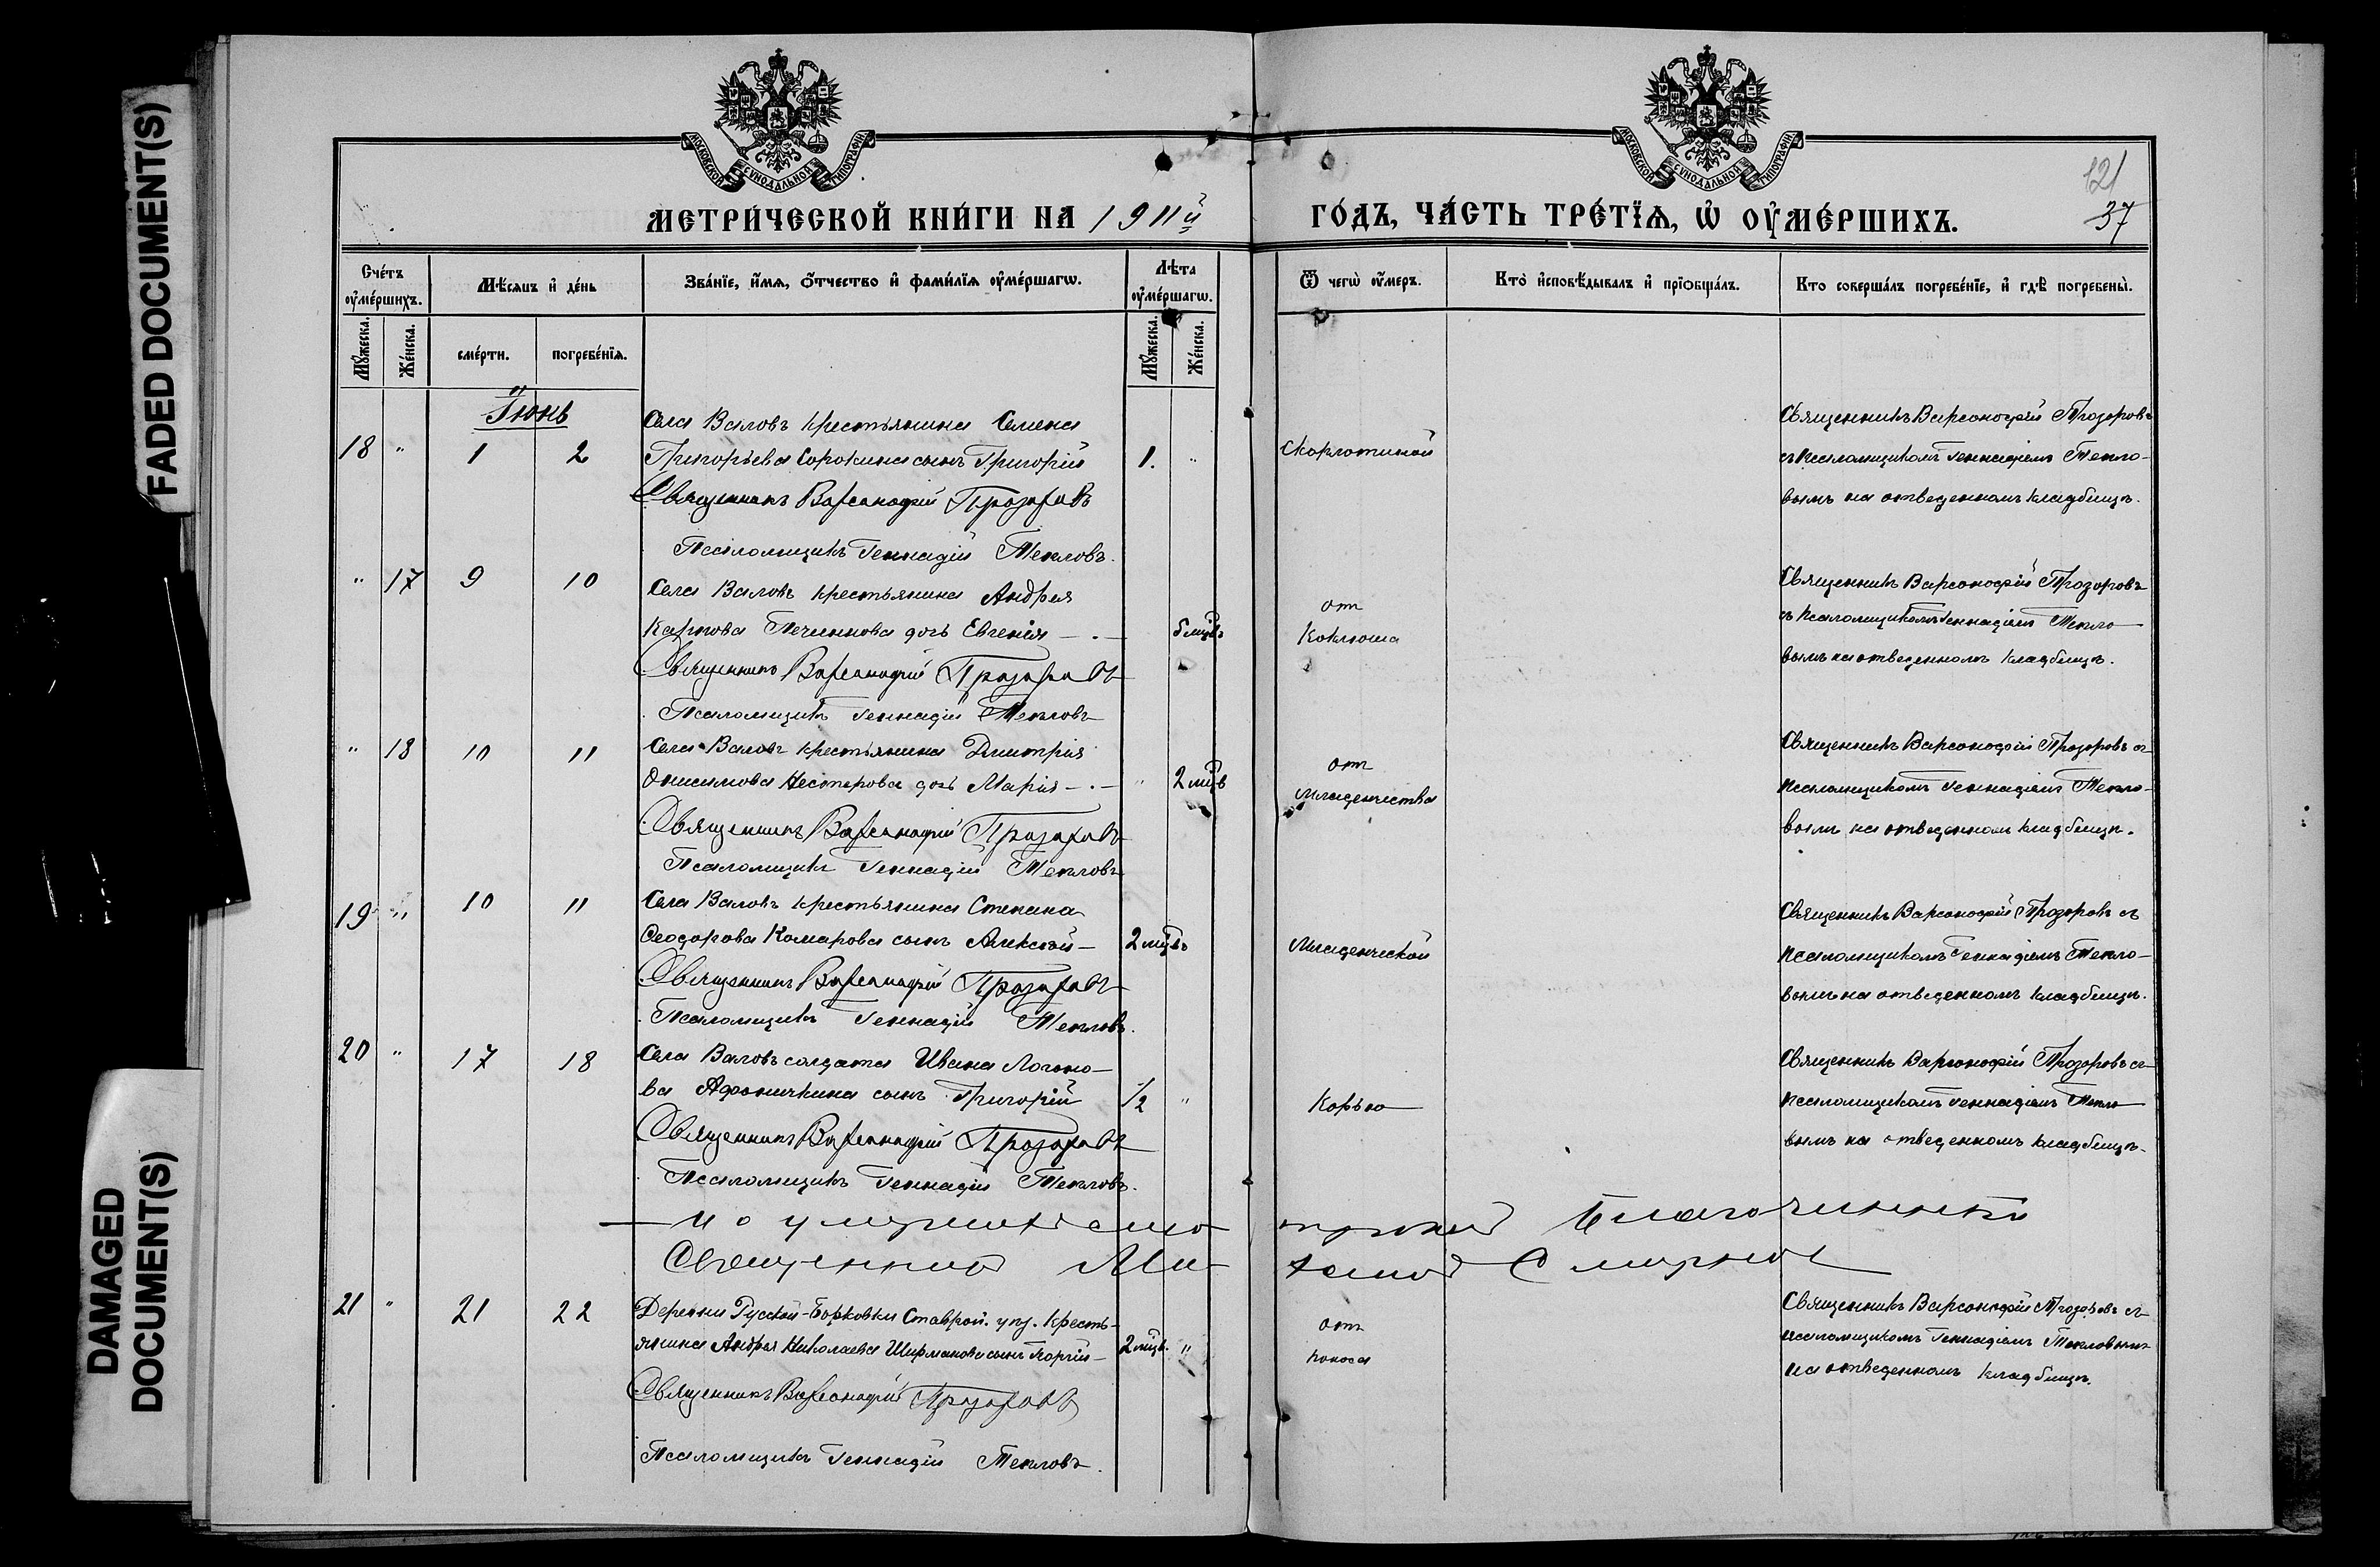 FADED DOCUMENT(S)
DAMAGED
DOCUMENT(S)
МОСКОВСКОЙ СѴНОДАЛЬНОЙ ТИПОГРАФІИ
МОСКОВСКОЙ СѴНОДАЛЬНОЙ ТИПОГРАФІИ
121
37
МЕТРИ́ЧЕСКОЙ КНИ́ГИ НА 1911й
ГО́ДЪ, ЧА́СТЬ ТРЕ́ТЇѦ, Ѡ҆ ОУ҆МЕ́РШИХЪ.
Сче́тъ оу҆ме́ршихъ.
Мѣ́сѧцъ и҆ де́нь
Зва́нїе, и҆́мѧ, ѻ҆́тчество и҆ фами́лїѧ оу҆ме́ршагѡ.
Лѣ́та оу҆ме́ршагѡ.
Ѿ чегѡ̀ оу҆́меръ.
Кто̀ и҆сповѣ́дывалъ и҆ прїѻбща́лъ.
Кто̀ соверша́лъ погребе́нїе, и҆ гдѣ̀ погребены̀.
Мꙋ́жеска.
Же́нска.
сме́рти.
погребе́нїѧ.
Мꙋ́жеска.
Же́нска.
Іюнь
18 " 1 2
Села Валовъ крестьянина Семена
Григорьева Сорокина сынъ Григорій 1. "
Священникъ Варсонофій Прозоровъ
Псаломщикъ Геннадій Тепловъ.
Скарлатиной
Священникъ Варсонофій Прозоровъ
съ псаломщикомъ Геннадіемъ Тепло-
вымъ на отведенномъ кладбищѣ.
" 17 9 10
Села Валовъ крестьянина Андрея
Карпова Печинкова дочь Евгенія
Священникъ Варсонофій Прозоровъ
Псаломщикъ Геннадій Тепловъ
отъ
Коклюша
Священникъ Варсонофій Прозоровъ
съ псаломщикомъ Геннадіемъ Тепло-
вымъ на отведенномъ кладбищѣ.
" 18 10 11
Села Валовъ крестьянина Димитрія
Онисимова Нестерова дочь Марія " 2 мцѣв
Священникъ Варсонофій Прозоровъ
Псаломщикъ Геннадій Тепловъ
отъ
младенчества
Священникъ Варсонофій Прозоровъ съ
псаломщикомъ Геннадіемъ Тепло-
вымъ на отведенномъ кладбищѣ.
19 " 10 11
Села Валовъ крестьянина Степана
Ѳеодорова Комарова сынъ Алексѣй - 2 мцѣвъ
Священникъ Варсонофій Прозоровъ
Псаломщикъ Геннадій Тепловъ.
Младенческой
Священникъ Варсонофій Прозоровъ съ
псаломщикомъ Геннадіемъ Тепло-
вымъ на отведенномъ кладбищѣ.
20 " 17 18
Села Валовъ солдата Ивана Логино-
ва Афоничкина сынъ Григорій 1/2 "
Священникъ Варсонофій Прозоровъ
Псаломщикъ Геннадій Тепловъ.
Корью
Священникъ Варсонофій Прозоровъ съ
псаломщикомъ Геннадіемъ Тепло-
вымъ на отведенномъ кладбищѣ.
Благочинный
Священникъ Смирнов
21 " 21 22
Деревни Русской-Борковки Ставроп. уѣз. кресть-
янина Андрея Николаева сынъ 2 мцѣв. "
Священникъ Варсонофій Прозоровъ
Псаломщикъ Геннадій Тепловъ.
отъ
поноса
Священникъ Варсонофій Прозоровъ съ
псаломщикомъ Геннадіемъ Тепловымъ
на отведенномъ кладбищѣ.